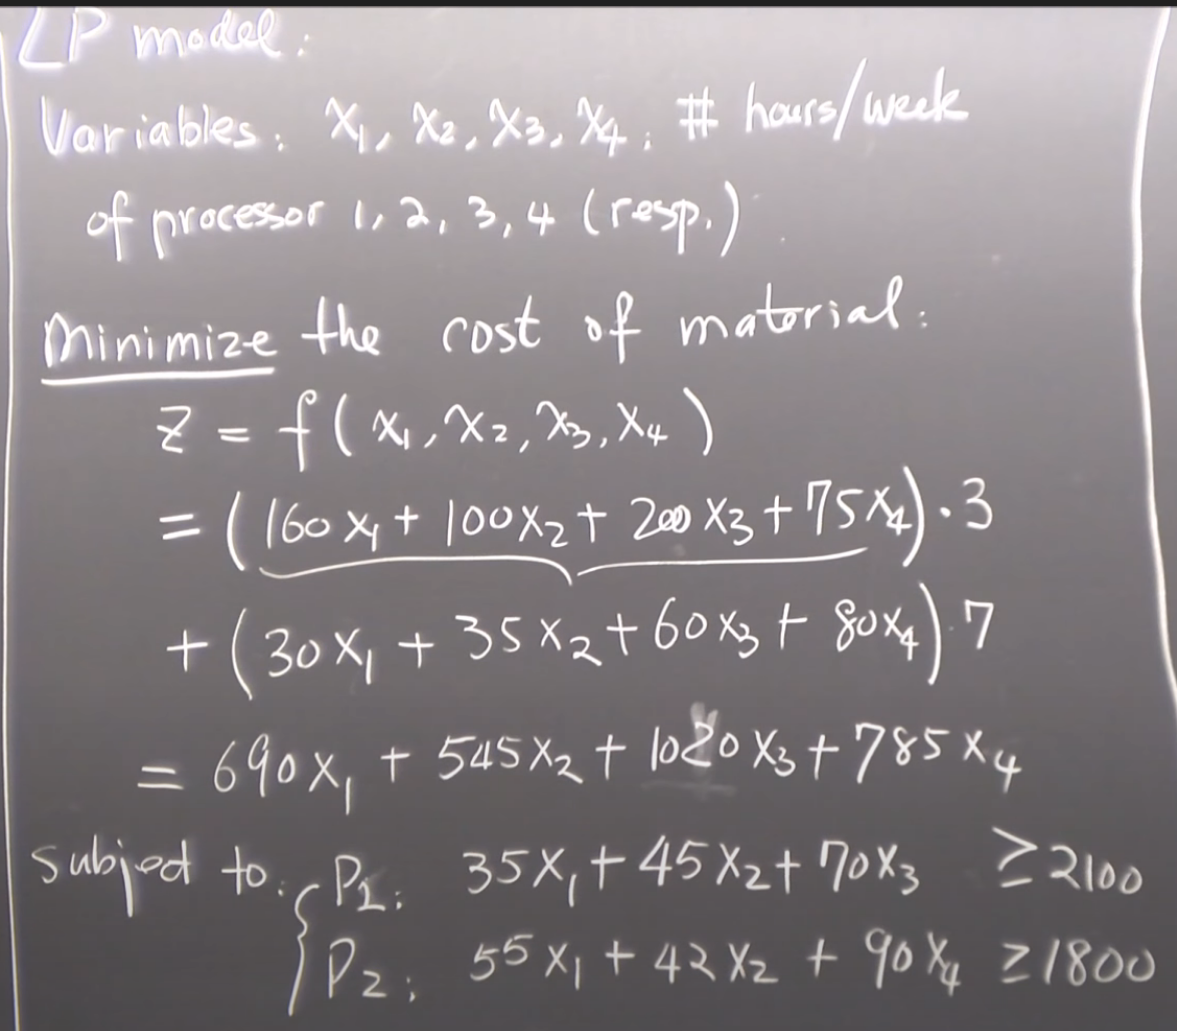 LP model:
Variables: x₁, x₂, x₃, x₄: # hours/week
of processor 1, 2, 3, 4 (resp.)
Minimize the cost of material:
Z = f(x₁, x₂, x₃, x₄)
= (160x₁ + 100x₂ + 200x₃ + 75x₄)·3
+ (30x₁ + 35x₂ + 60x₃ + 80x₄)·7
= 690x₁ + 545x₂ + 1020x₃ + 785x₄
Subject to: P1: 35x₁ + 45x₂ + 70x₃ ≥ 2100
P2: 55x₁ + 42x₂ + 90x₄ ≥ 1800